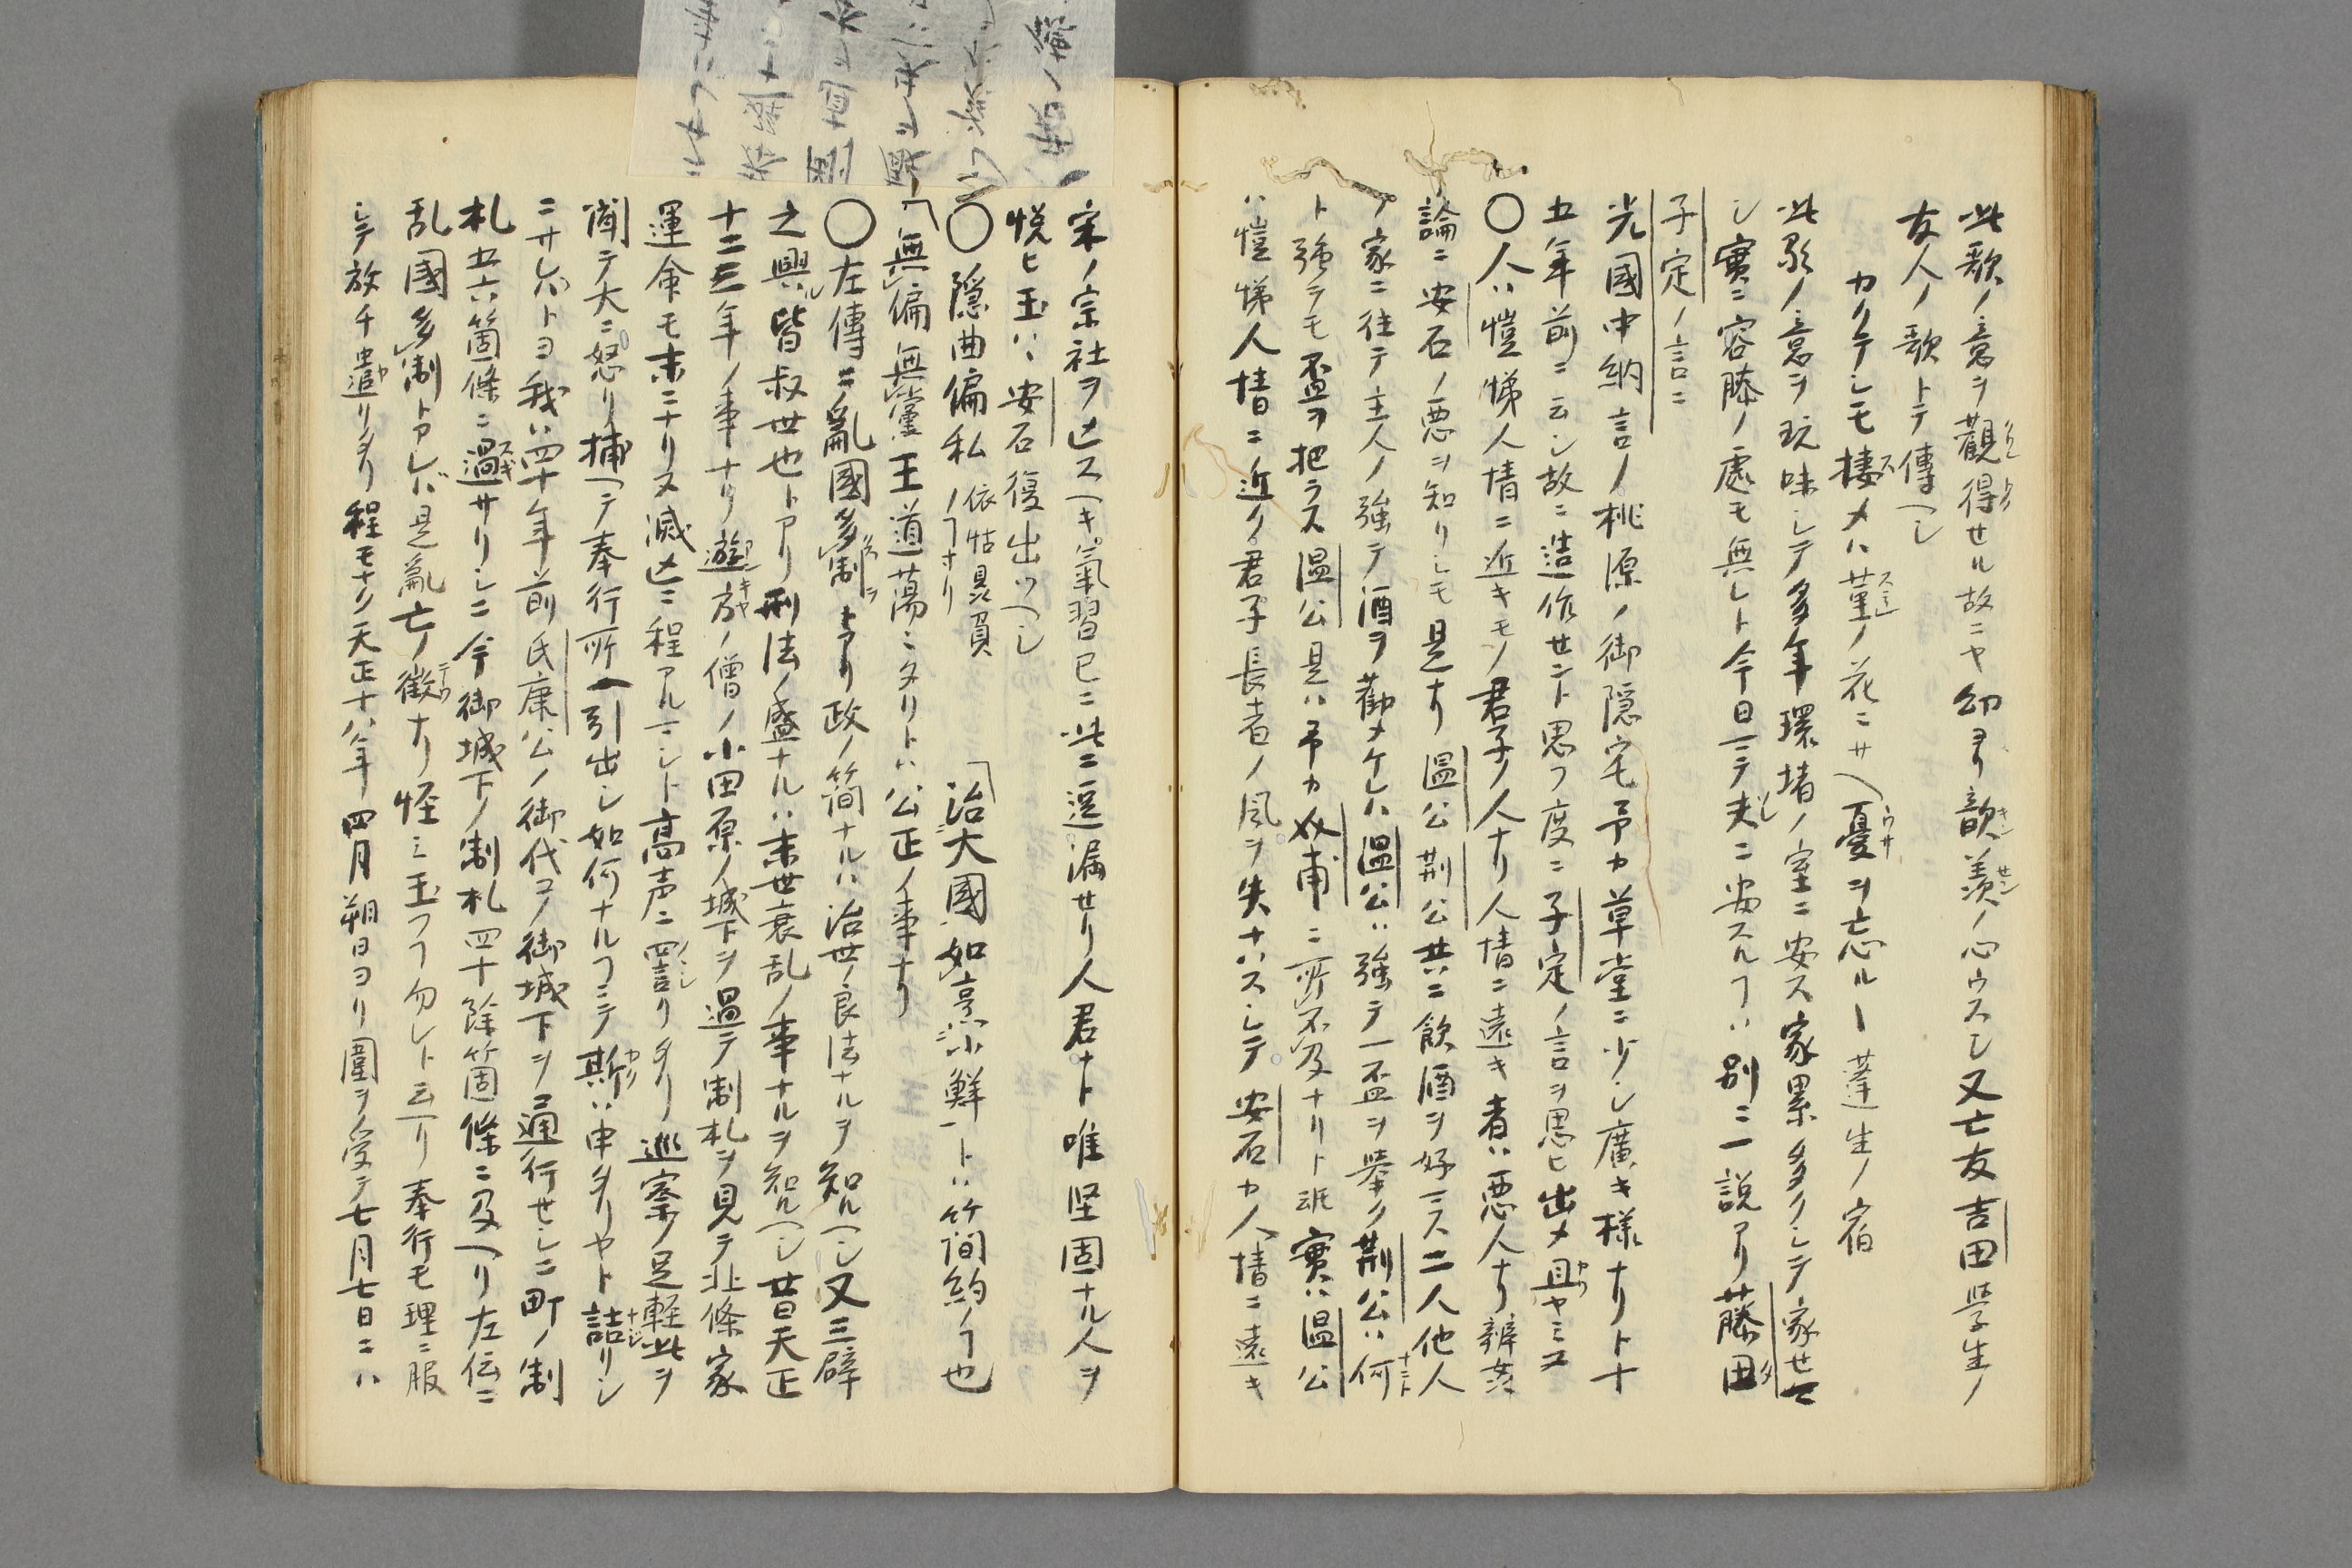 此歌ノ意ヲ觀得セル故ニヤ幼ヨリ歆羨ノ心ウスシ又亡友吉田學生ノ
友人ノ歌トテ傳ヘシ
カクテシモ棲メハ菫ノ花ニサヘ憂ヲ忘ルー蓬生ノ宿
此歌ノ意ヲ玩味シテ多年環堵ノ室ニ安ス家累多クシテ家セマ
シ實ニ容膝ノ處モ無レト今日ニテ夫ニ安スルヿハ別ニ一説アリ藤田
子定ノ言ニ
光國中納言ノ桃原ノ御隠宅予カ草堂ニ少シ廣キ様ナリト十
五年前ニ云シ故ニ造作セント思フ度ニ子定ノ言ヲ思ヒ出メ且ヤミヌ
〇人ハ愷悌人情ニ近キモノ君子ノ人ナリ人情ニ遠キ者ハ悪人ナリ辨姦
論ニ安石ノ悪ヲ知リシモ是ナリ温公荆公共ニ飲酒ヲ好ミス二人他人
ノ家ニ往テ主人ノ強テ酒ヲ勸メケレハ温公ハ強テ一盃ヲ舉ク荆公ハ何
ト強テモ盃ヲ把ラス温公是ハ予カ介甫ニ所不及ナリト云実ハ温公
ハ愷悌人情ニ近ク君子長者ノ風ヲ失ナハスシテ安石カ人情ニ遠キ
宋ノ宗社ヲ亡スヘキ氣習已ニ此ニ逗漏セリ人君ナト唯坚固ナル人ヲ
悦ヒ玉ハ丶安石復出ツヘシ
〇隠曲偏私 依怙贔負ノヿナリ 「治大國如烹小鮮」トハ簡約ノヿ也
「無偏無黨王道蕩ミタリトハ公正ノ事ナリ
〇左傳ニ亂國多制トアリ政ノ簡ナルハ治世ノ良法ナルヲ知ルヘシ又三辟
之興皆叔世也トアリ刑法ノ盛ナルハ末世衰乱ノ事ナルヲ知ルヘシ昔天正
十二三年ノ事ナリ遊方ノ僧ノ小田原ノ城下ヲ過テ制札ヲ見テ北條家
運命モ末ニナリヌ滅亡ニ程アルマシト高声ニ詈リタリ巡察ノ足軽此ヲ
聞テ大ニ怒リ捕ヘテ奉行所ヘ引出シ如何ナルヿニテ斯ハ申タリヤト詰リシ
ニサレハトヨ我ハ四十年前氏康公ノ御代コノ御城下ヲ通行セシニ町ノ制
札五六箇條ニ過サリシニ今御城下ノ制札四十餘箇條ニ及ヘリ左伝ニ
乱國多制トアレバ是亂亡ノ徴ナリ怪ミ玉フヿ勿レト云リ奉行モ理ニ服
シテ放チ遣リタリ程モナク天正十八年四月朔日ヨリ圍ヲ受テ七月七日ニハ